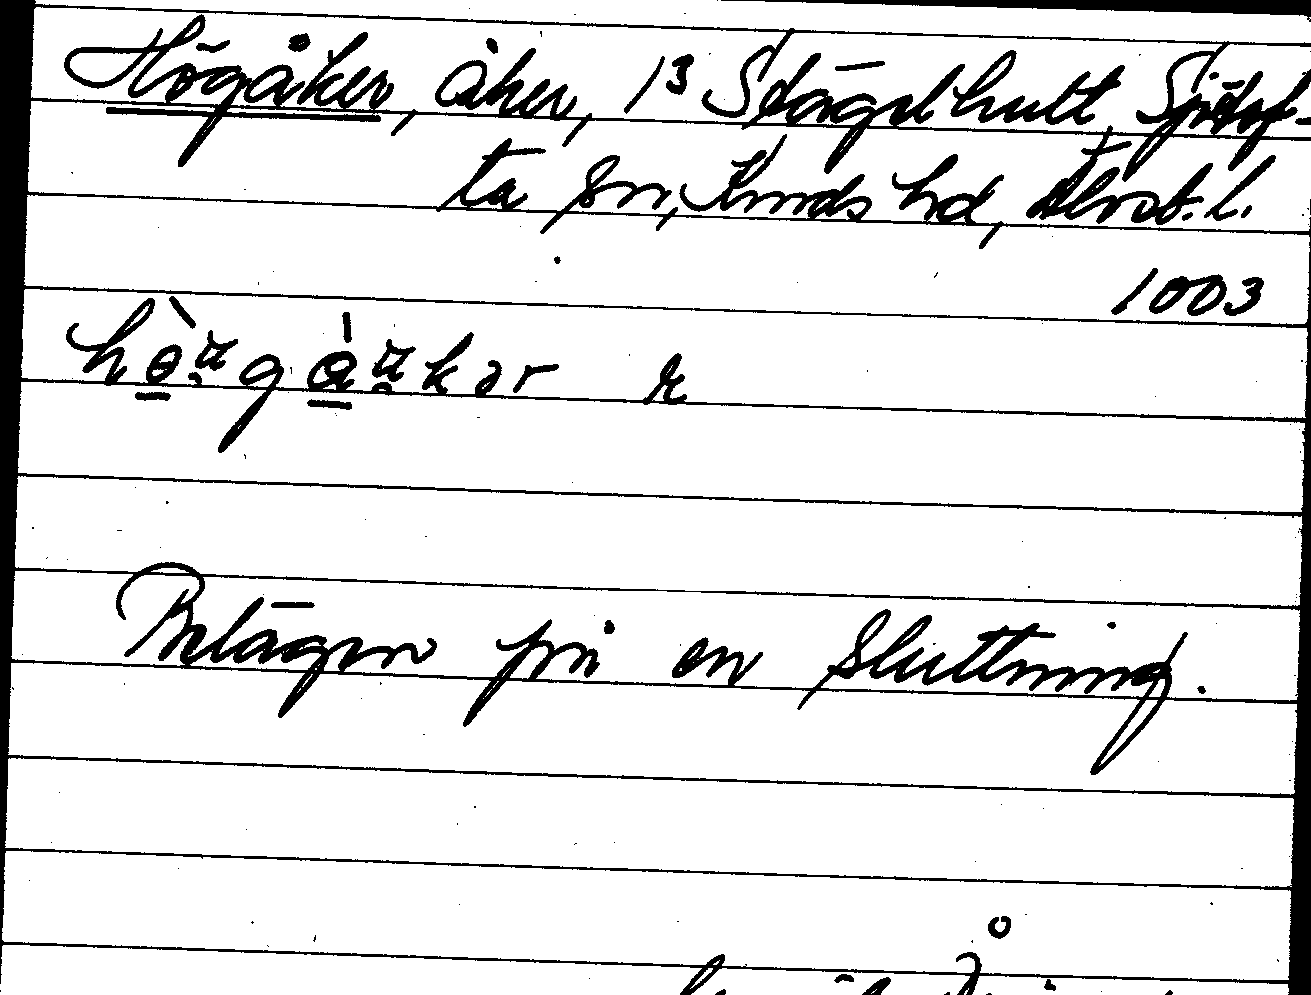 Högåker, åker, 1³ Stägelhult, Spötöf-
ta sn, Kinds hd, Älvsb. l.
1003
hògàkər r
Belägen på en sluttning.